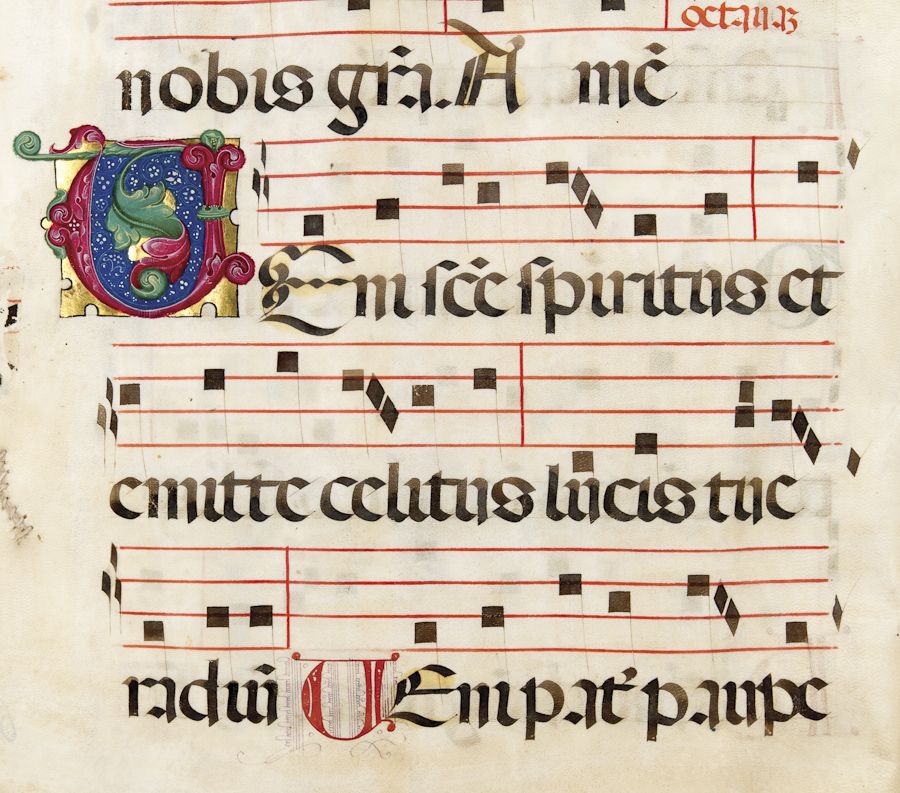 octauaȝ
nobis gr̃a. A mẽ
VEni sc̃e spiritus et
emitte celitus lucis tue
radiũ VEni pat̕ paupe